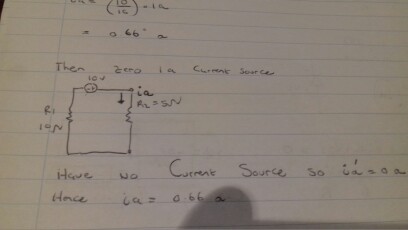 = (10/15) × 1a
= 0.66 a
Then zero 1a current source
10v
ia
R1
R2 = 5Ω
10Ω
Have no Current Source so ia' = 0a
Hence ia = 0.66 a